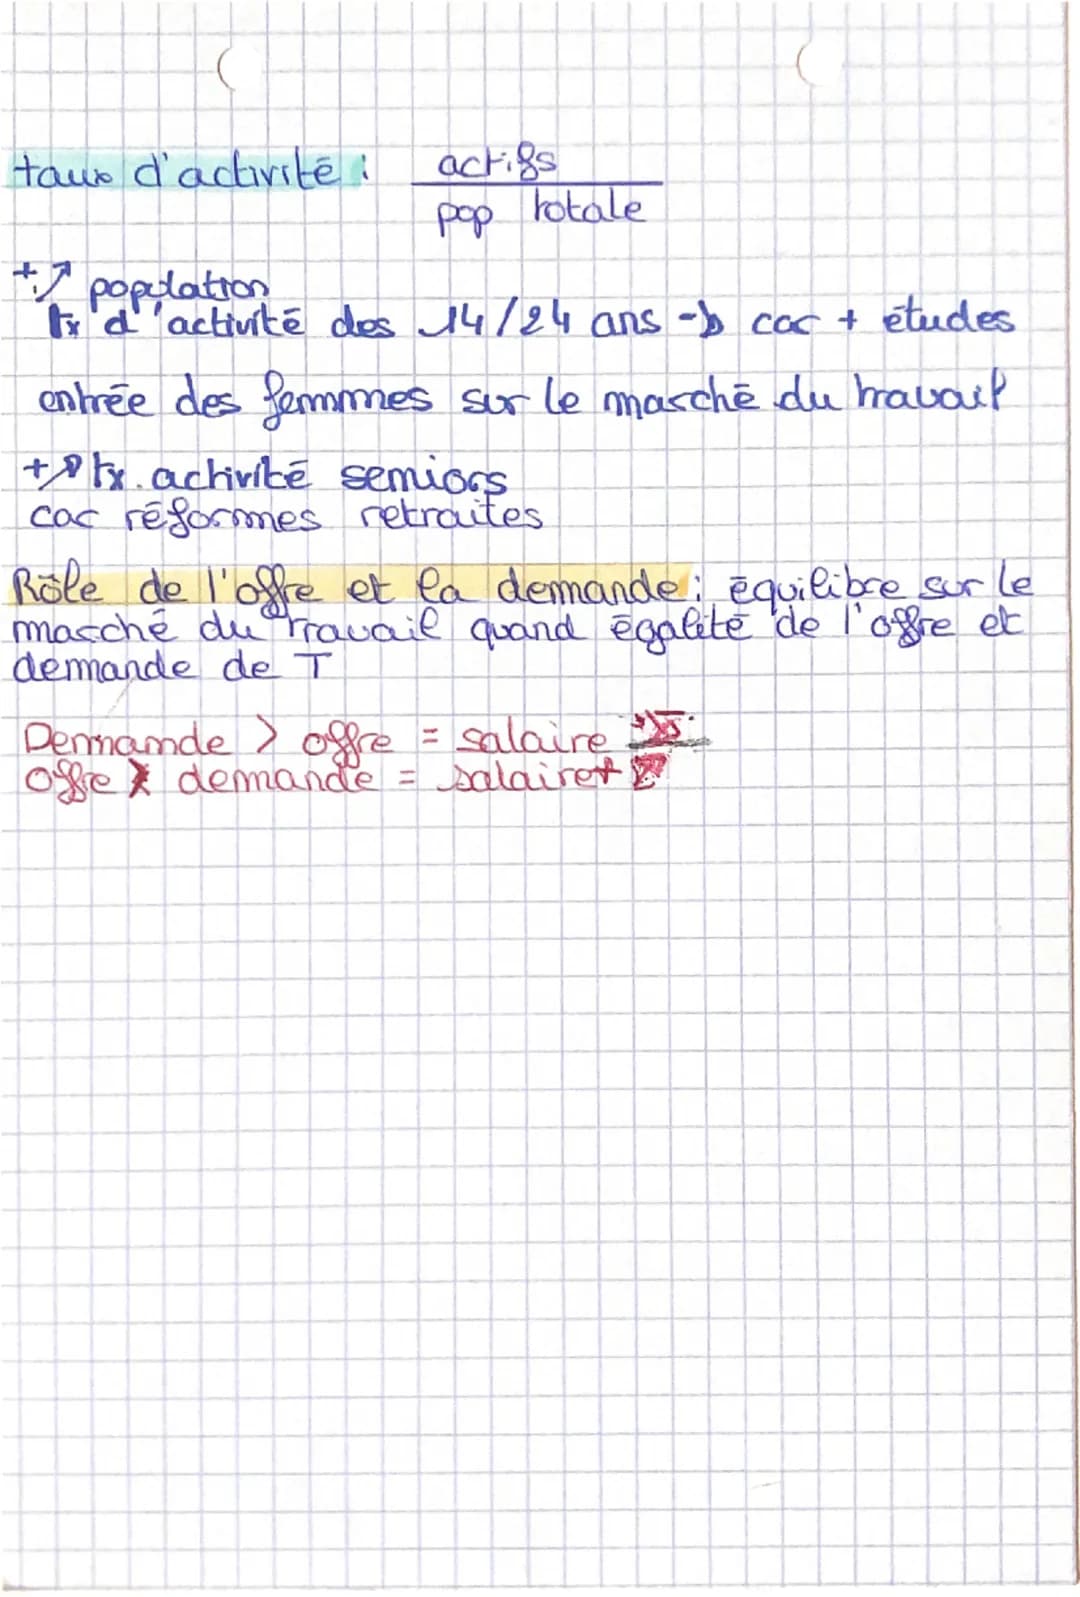 taux d'activité : actifs
pop totale
+ ↗ population
tx d'activité des 14/24 ans -> car + études
entrée des femmes sur le marché du travail
+ ↗ tx. activité seniors
car réformes retraites
Rôle de l'offre et la demande : équilibre sur le
marché du travail quand égalité de l'offre et
demande de T
Demande > offre = salaire
offre demande = salaire +